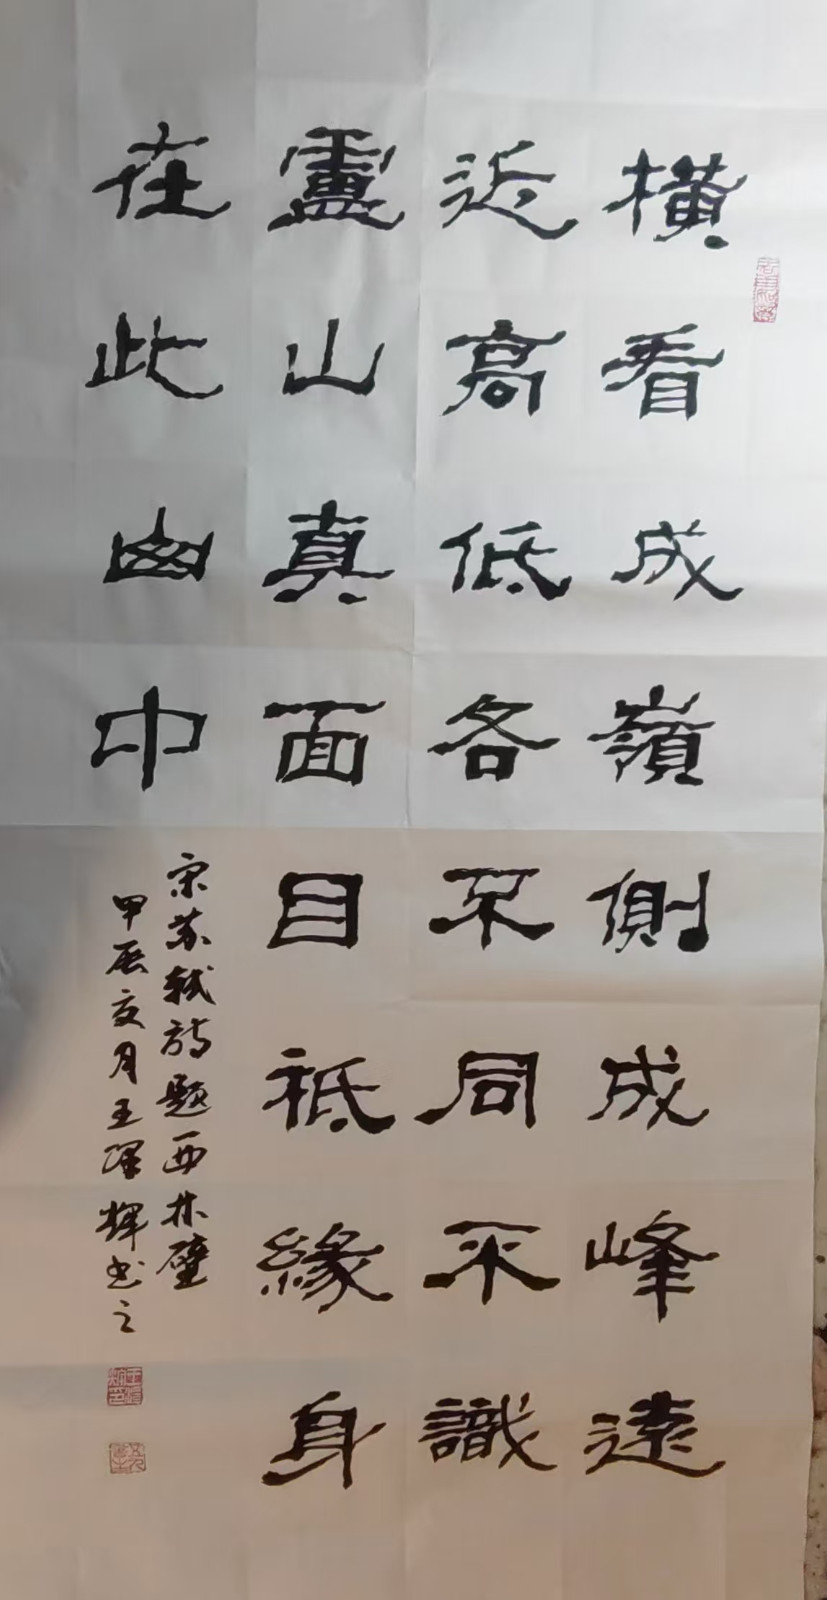 橫看成嶺側成峰遠
近高低各不同不識
盧山真面目祇緣身
在此中
宋苏軾詩題西林壁
甲辰月王輝书之